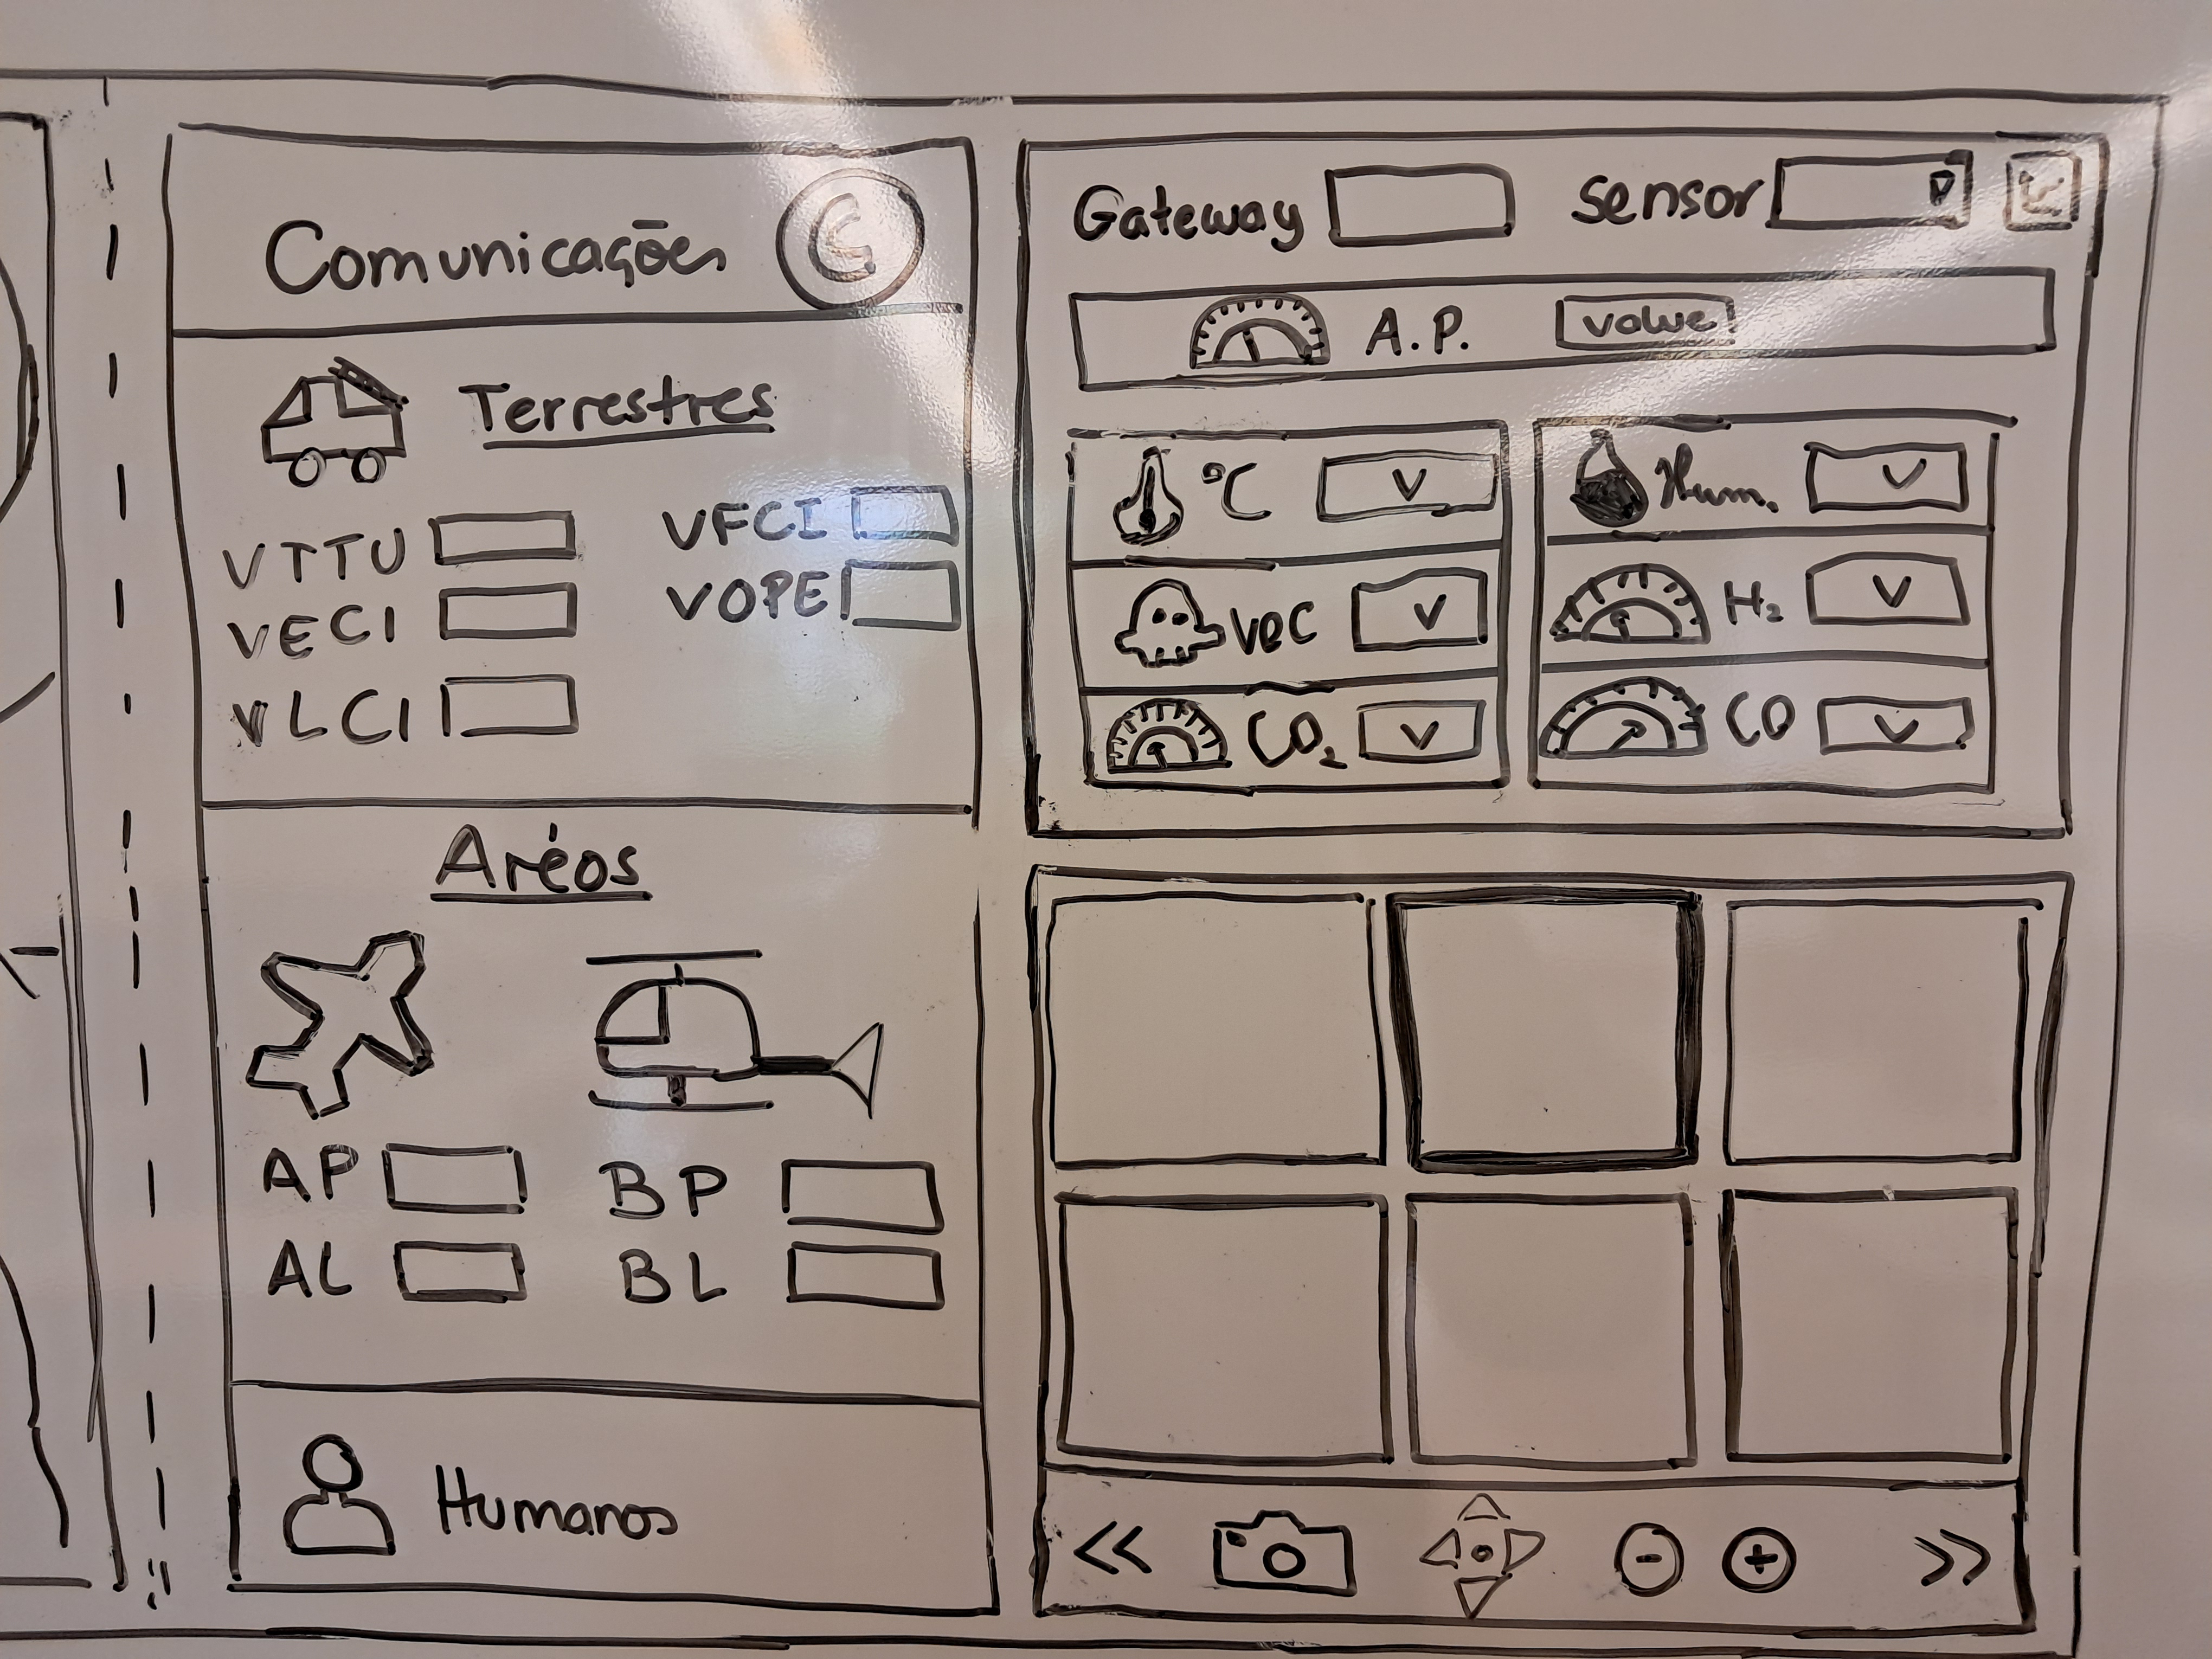 Comunicações
Terrestres
VTTU
VFCI
VECI
VOPE
VLCI
Aréos
AP
BP
AL
BL
Humanos
Gateway
Sensor
A.P.
value
°C V
Hum. V
VOC V
H₂ V
CO₂ V
CO V
<<
- +
>>